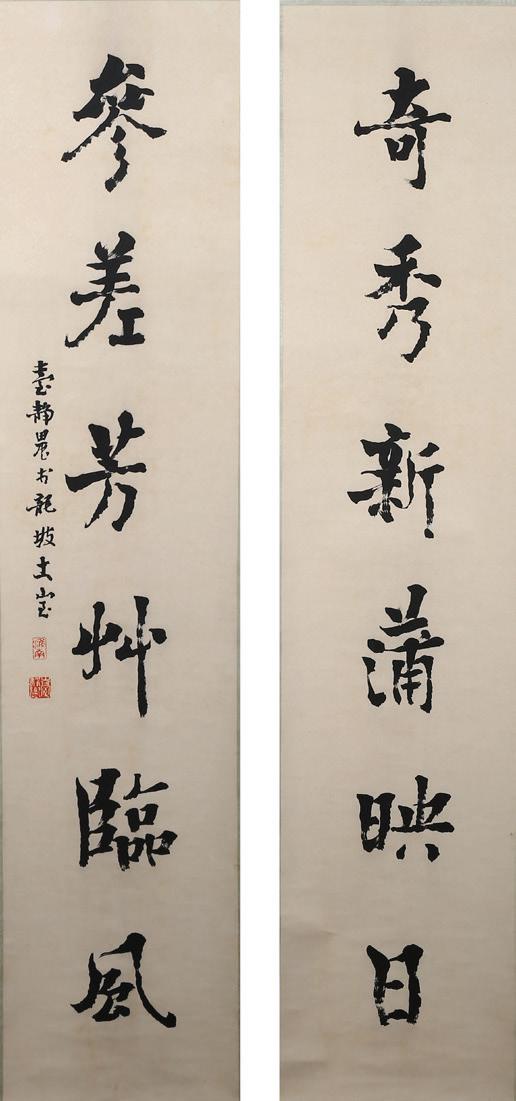 奇秀新蒲映日
參差芳艸臨風
臺靜農於龍坡